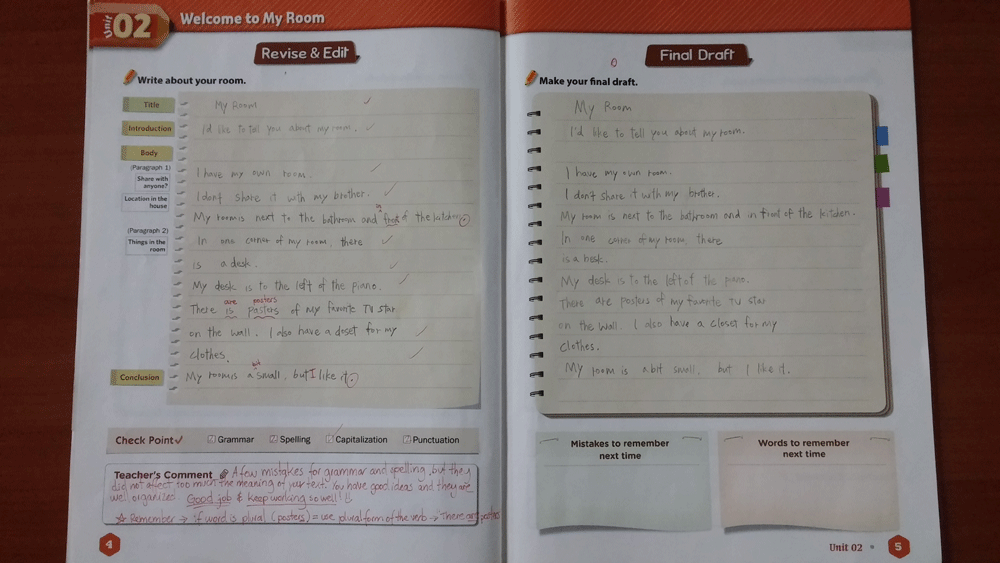 Unit 02
Welcome to My Room
Revise & Edit
Write about your room.
Title
My Room
Introduction
I'd like to tell you about my room.
Body
(Paragraph 1)
Share with anyone?
Location in the house
I have my own room.
I don't share it with my brother.
in
My room is next to the bathroom and front of the kitchen.
(Paragraph 2)
Things in the room
In one corner of my room, there
is a desk.
My desk is to the left of the piano.
are posters
There is pasters of my favorite TV star
on the wall. I also have a closet for my
clothes.
Conclusion
bit
My room is a small, but I like it.
Check Point
Grammar
Spelling
Capitalization
Punctuation
Teacher's Comment
A few mistakes for grammar and spelling, but they
did not affect too much the meaning of your text. You have good ideas and they are
well organized. Good job & keep working so well!
Remember → if word is plural (posters) = use plural form of the verb → There are posters
4
Final Draft
Make your final draft.
My Room
I'd like to tell you about my room.
I have my own room.
I don't share it with my brother.
My room is next to the bathroom and in front of the kitchen.
In one corner of my room, there
is a besk.
My desk is to the left of the piano.
There are posters of my favorite TV star
on the wall. I also have a closet for my
clothes.
My room is a bit small, but I like it.
Mistakes to remember
next time
Words to remember
next time
Unit 02
5